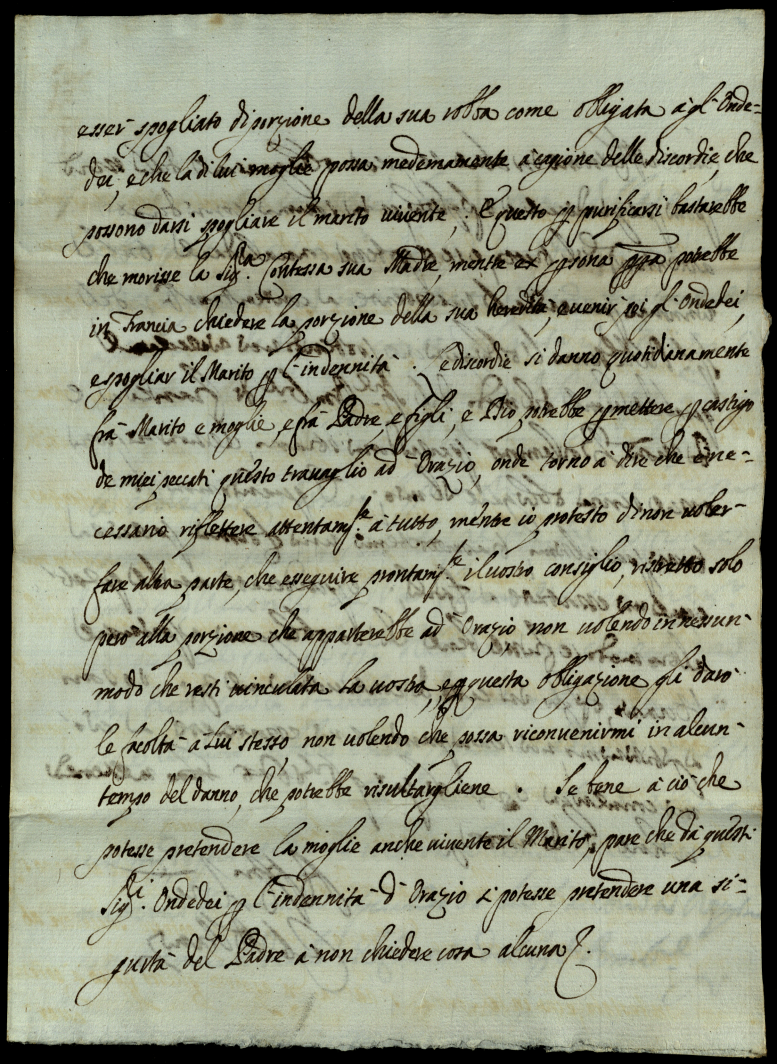 esser spogliato di porzione della sua robba come obligata à gl' Onde=
dei, e che la di lui moglie possa medemamente à cagione delle discordie, che
possono darsi spogliare il marito vivente, E questo p purificarsi bastarebbe
che morisse la Sig.ra Contessa sua Madre, mentre ex psona ppa potrebbe
in Francia chiedere la porzione della sua heredità, e venir poi gl' Ondedei,
e spogliar il Marito p l'indennità. e discordie si danno quotidianamente
frà Marito e moglie, e frà Padre, e figli, e Dio potrebbe pmettere p castigo
de miei peccati questo travaglio ad Orazio, onde torno à dire che è ne=
cessario riflettere attentam.te à tutto, mentre io protesto di non voler
fare altra parte, che eseguire prontam.te il vostro consiglio, ristretto solo
però alla porzione che apparterebbe ad Orazio non volendo in nessun
modo che resti vinculata la vostra, e p questa obligazione gli darò
le facoltà à Lui stesso, non volendo che possa riconvenirmi in alcun
tempo del danno, che potrebbe risultargliene. Se bene à ciò che
potesse pretendere la moglie anche vivente il Marito, pare che dà questi
Sig.ri Ondedei p l'indennità d'Orazio si potesse pretendere una si=
gurtà del Padre à non chiedere cosa alcuna